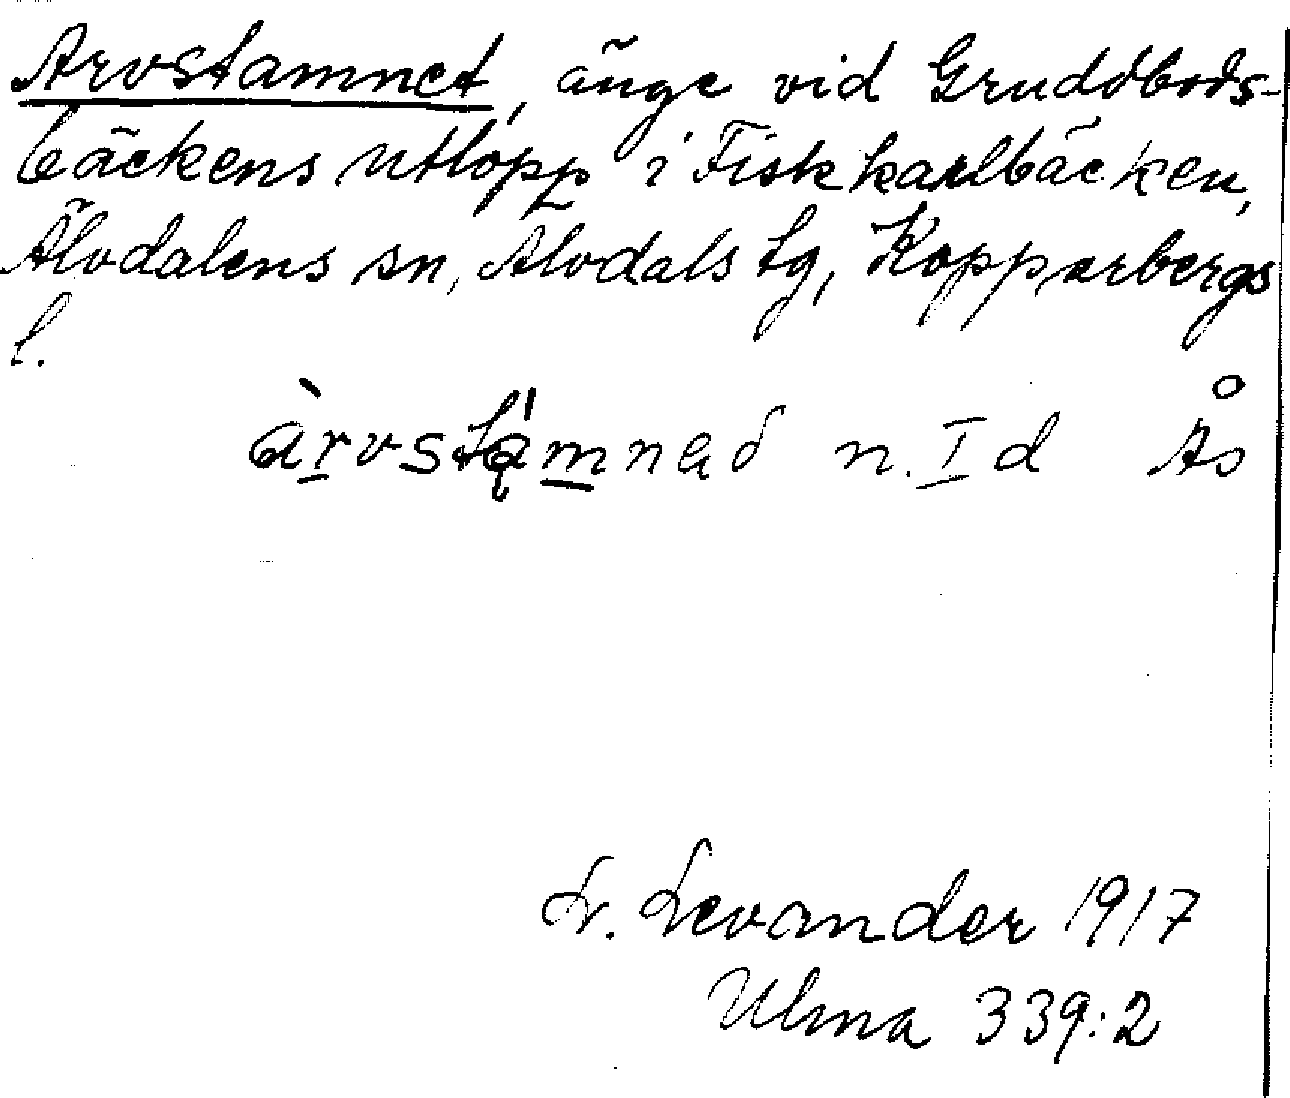 Arvstamnet, änge vid Gruddbods-
bäckens utlopp i Fiskkarlbäcken,
Älvdalens sn, Älvdals tg, Kopparbergs
l.
àrvstą́mnəđ n. I d Ås
Lr. Levander 1917
Ulma 339:2